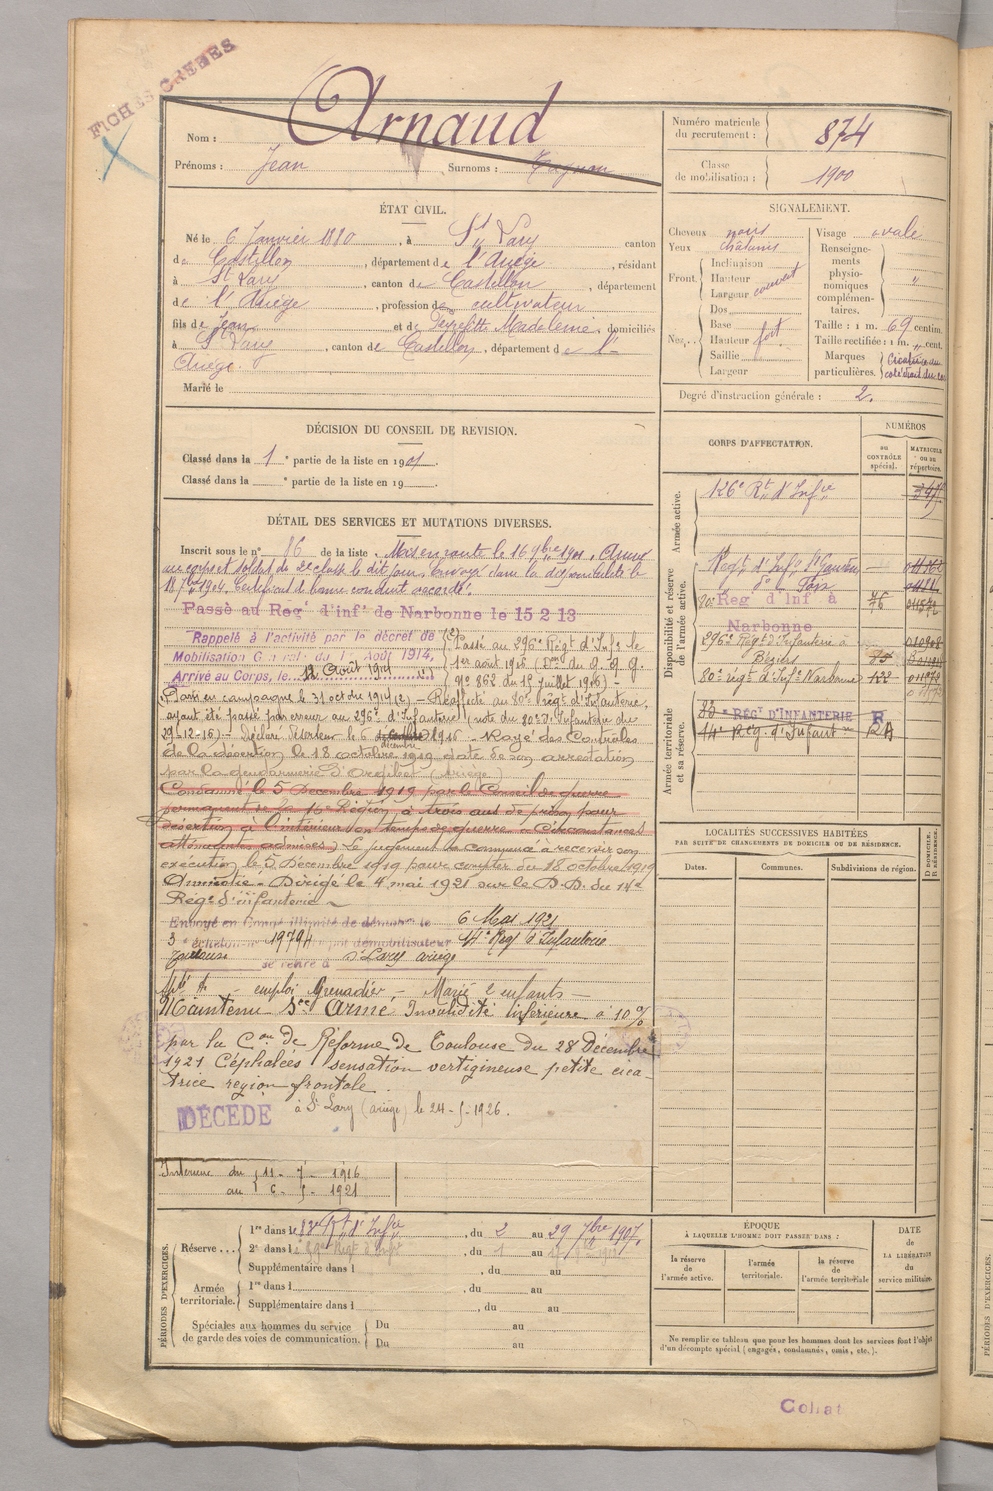 FICHES CRÉÉES
Nom : Arnaud
Prénoms : Jean Surnoms :
Numéro matricule du recrutement : 874
Classe de mobilisation : 1900
ÉTAT CIVIL.
Né le 6 Janvier 1880, à St Lary canton
de Castillon, département de l'Ariège, résidant
à St Lary, canton de Castillon, département
de l'Ariège, profession de cultivateur
fils de Jean et de Madeleine, domiciliés
à St Lary, canton de Castillon, département de l'
Ariège.
Marié le
SIGNALEMENT.
Cheveux noirs
Yeux châtains
Front. Inclinaison
Hauteur couvert
Largeur
Nez. Dos
Base
Hauteur fort
Saillie
Largeur
Visage ovale
Renseigne-
ments
physio-
nomiques
complémen-
taires. "
Taille : 1 m. 69 centim.
Taille rectifiée : 1 m. " cent.
Marques particulières. Cicatrice au
coté droit du
Degré d'instruction générale : 2.
DÉCISION DU CONSEIL DE REVISION.
Classé dans la 1e partie de la liste en 1901.
Classé dans la e partie de la liste en 19
CORPS D'AFFECTATION.
NUMÉROS
au CONTRÔLE spécial.
MATRICULE ou au répertoire.
Armée active.
126e Rt d'Infie
Disponibilité et réserve de l'armée active.
Regt d'Infie St Gaudens
do Foix
80e Reg d'Inf à
Narbonne
296e Régt d'Infanterie à
Béziers
80e régt d'Infie Narbonne
Armée territoriale et sa réserve.
RÉGt D'INFANTERIE R
14e Rég. d'Infantie
DÉTAIL DES SERVICES ET MUTATIONS DIVERSES.
Inscrit sous le n° 86 de la liste. Mis en route le 16 9bre 1901. Arrivé
au corps et soldat de 2e classe le dit jour. Envoyé dans la disponibilité le
18 7bre 1904. Certificat de bonne conduite accordé.
Passé au Reg d'inf de Narbonne le 15 2 13
Rappelé à l'activité par le décret de
Mobilisation Générale du 1er Août 1914,
Arrivé au Corps, le 12 Août 1914
Passé au 296e Régt d'Infie le
1er août 1916
no 862 du 15 juillet 1916) -
Parti en campagne le 31 oct du 1914 (2) - Réaffecté au 80e régt d'Infanterie,
ayant été passé par erreur au 296e d'Infanterie (note du 80e d'Infanterie du
29-12-16) - Déclaré déserteur le 6 décembre 1916 - Rayé des Contrôles
de la désertion le 18 octobre 1919 date de son arrestation
par la gendarmerie d'Orgibet (Ariège)
Condamné le 5 Décembre 1919 par le Conseil de guerre
permanent de la 16e Région à trois ans de prison pour
désertion à l'intérieur en temps de guerre - Circonstances
atténuantes admises. Le jugement a commencé à recevoir son
exécution le 5 Décembre 1919 pour compter du 18 octobre 1919
Amnistié - Dirigé le 4 mai 1921 sur le D.D. du 14e
Régt d'infanterie
Envoyé en congé illimité de démob. le 6 Mai 1921
3e échelon n° 19794 démobilisateur 14e Régt d'Infanterie
Toulouse se retire à St Lary Ariège
emploi Grenadier, - Marié 2 enfants -
Maintenu Sce Armé Invalidité inférieure à 10 %
par la Con de Réforme de Toulouse du 28 Décembre
1921 Céphalées sensation vertigineuse petite cica-
trice région frontale
DÉCÉDÉ à St Lary (ariège) le 24-5-1926.
Intérieur du 11 - 7 - 1916
au 6 - 5 - 1921
LOCALITÉS SUCCESSIVES HABITÉES
PAR SUITE DE CHANGEMENTS DE DOMICILE OU DE RÉSIDENCE.
Dates. Communes. Subdivisions de région. D DOMICILE. R RÉSIDENCE.
PÉRIODES D'EXERCICES.
Réserve... 1re dans le Rt d'Infie, du 2 au 29 7bre 1907.
2e dans l , du 1 au
Supplémentaire dans l , du au
Armée territoriale. 1re dans l , du au
Supplémentaire dans l , du au
Spéciales aux hommes du service de garde des voies de communication. Du au
Du au
ÉPOQUE
À LAQUELLE L'HOMME DOIT PASSER DANS :
la réserve de l'armée active. l'armée territoriale. la réserve de l'armée territoriale
DATE de LA LIBÉRATION du service militaire.
Ne remplir ce tableau que pour les hommes dont les services font l'objet
d'un décompte spécial (engagés, condamnés, omis, etc.).
PÉRIODES D'EXERCICES.